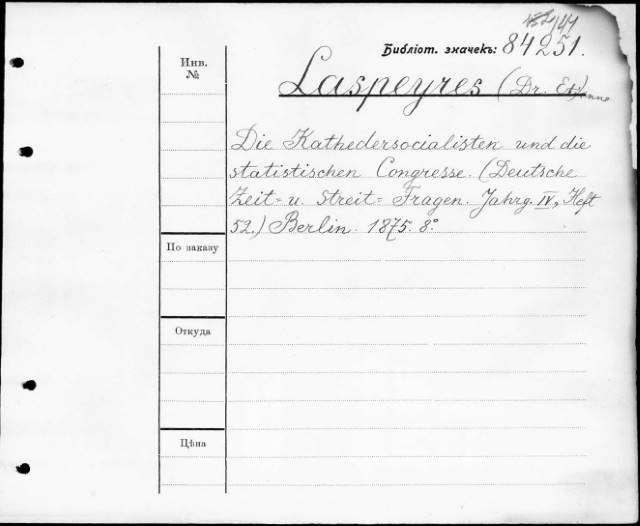 Библіот. значекъ: 84251.
Инв.
№
Laspeyres (Dr. Etienne)
Die Kathedersocialisten und die
statistischen Congresse. (Deutsche
Zeit= u. Streit= Fragen. Jahrg. IV, Heft
52.) Berlin. 1875. 8°.
По заказу
Откуда
Цѣна